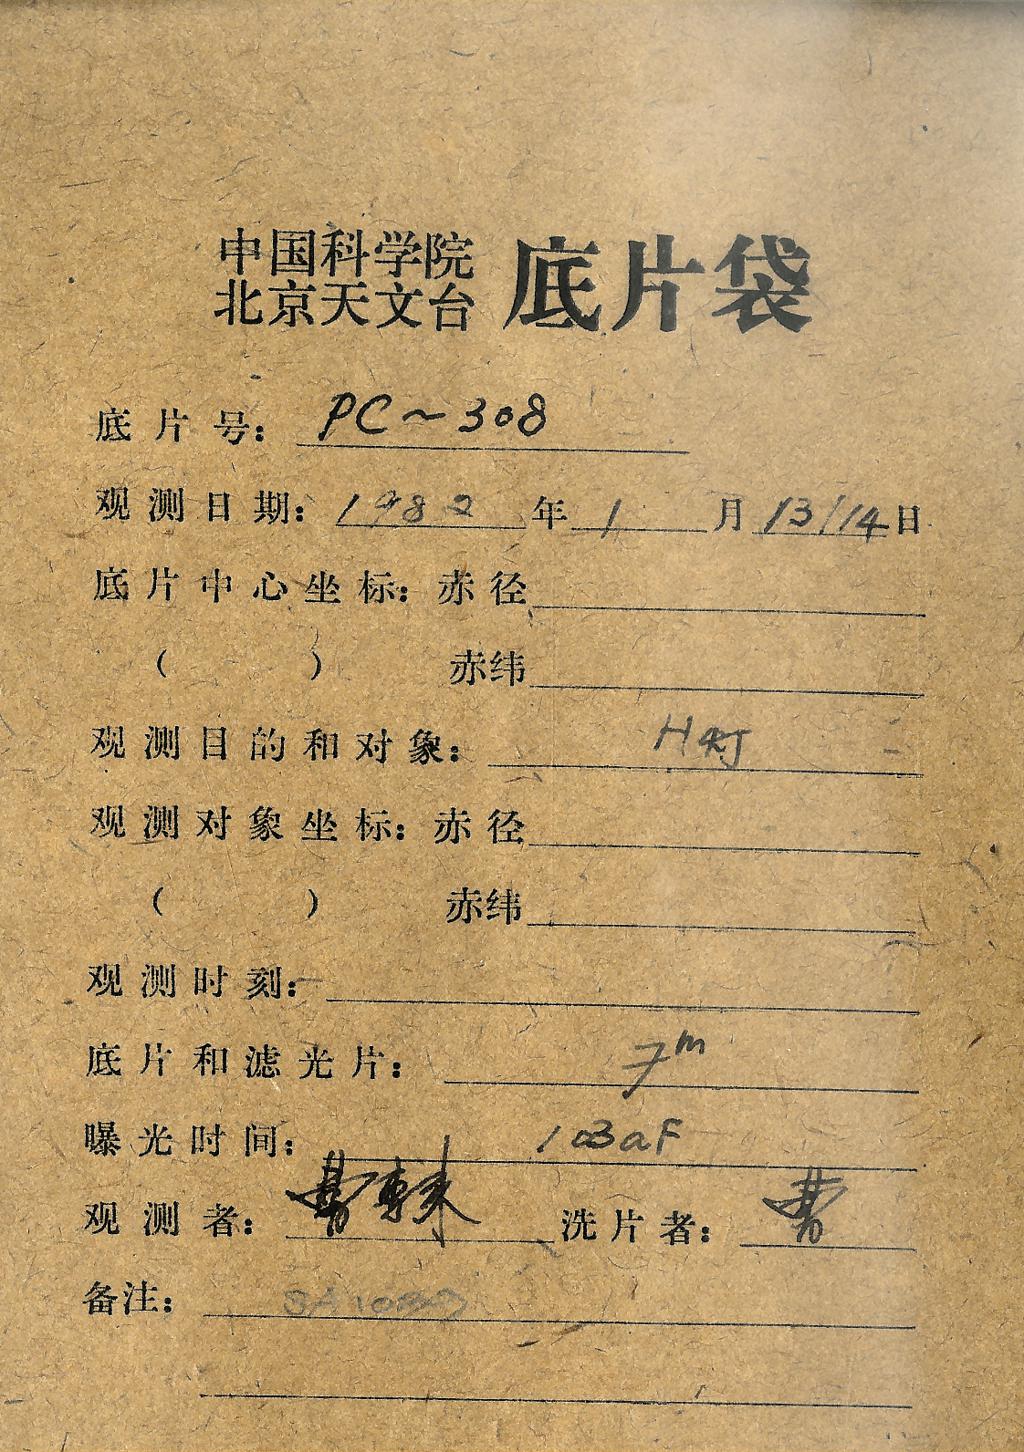 中国科学院
北京天文台 底片袋
底片号: PC~308
观测日期: 1982年1月13/14日
底片中心坐标: 赤径
( ) 赤纬
观测目的和对象: H灯
观测对象坐标: 赤径
( ) 赤纬
观测时刻:
底片和滤光片: 7m
曝光时间: 103aF
观测者: 洗片者: 黄
备注: